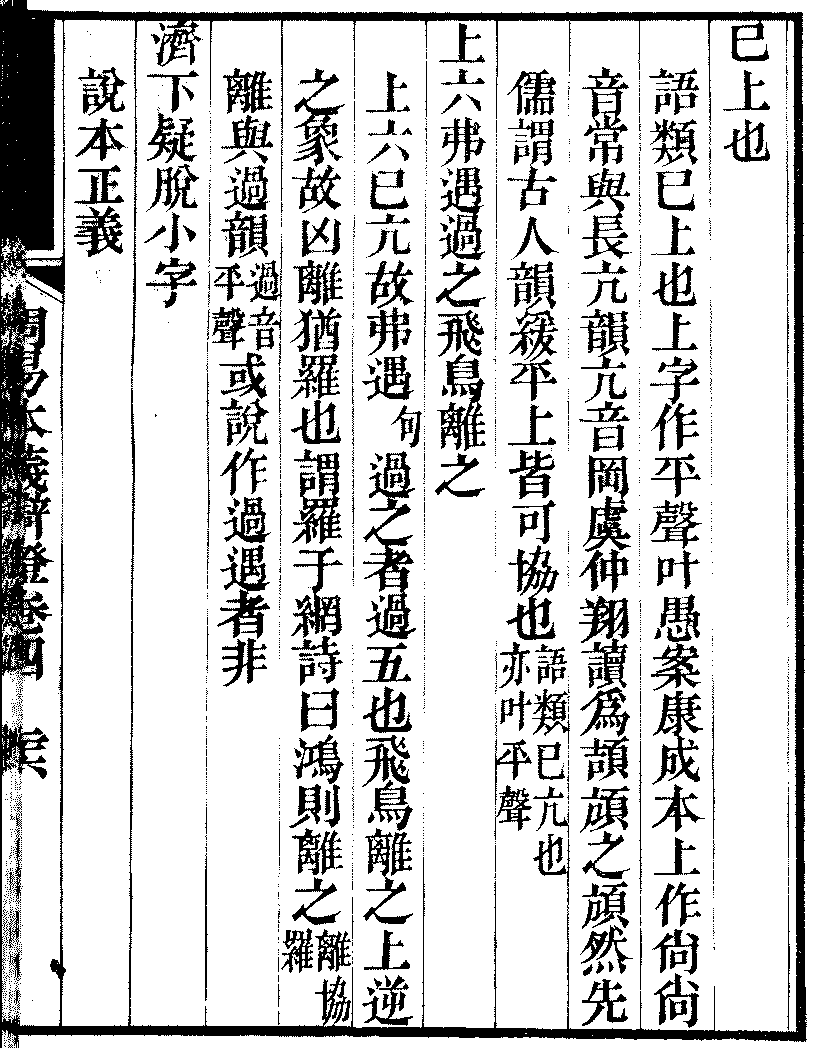 已上也
語類已上也上字作平聲叶愚案康成本上作尙尙
音常與長亢韻亢音岡虞仲翔讀爲頡頏之頏然先
儒謂古人韻緩平上皆可協也語類已亢也亦叶平聲
上六弗遇過之飛鳥離之
上六已亢故弗遇句過之者過五也飛鳥離之上逆
之象故凶離猶羅也謂羅于網詩曰鴻則離之離協羅
離與過韻過音平聲或說作過遇者非
濟下疑脫小字
說本正義
周易本義辯證卷四